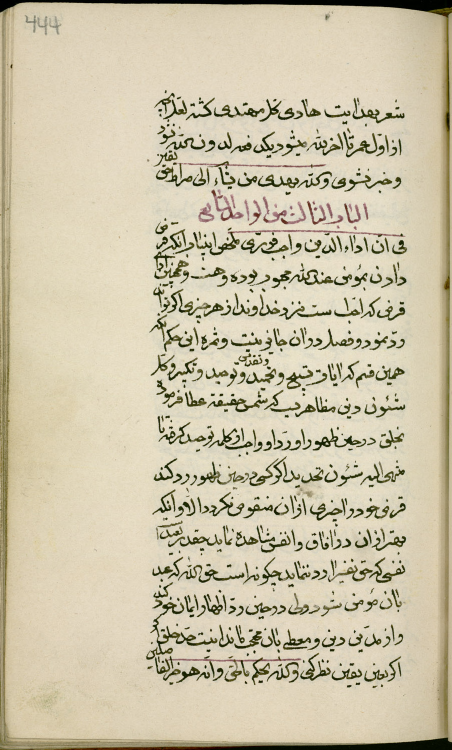 444
شعر بهدایت هادی کل مهتدی کشته
از اول عمر تا آخر لله میشود یک فعه لدون الله
و خبر نشوی والله یهدی من یشاء الی صراط حق یقین
الباب الثالث من الواحد التاسع
فی ان اداء الدین واجب فوری ملخص اینباب آنکه قرض
دادن بمؤمنی عند الله محبوب بوده و هست و همچنین ادای
قرض که احب است نزد خداوند از هر چیزی اگر تواند
رد نمود و فصل در آن جایز نیست و ثمره این حکم آنکه
همین قسم که آیات تسبیح و تحمید و تقدیس و توحید و تکبیر و کل
شئون دینی مظاهریست که شمس حقیقت عطا فرموده
بخلق در حین ظهور او رد او واجب از کلمه توحید گرفته تا
منتهی الیه شئون تحدید اگر کسی در حین ظهور رد کند
قرض خود را چیزی از آن منقوص نگردد الا و آنکه
بهتر از آن در آفاق و انفس مشاهده نماید چقدر بعید است
نفسی که حق نفسی را رد ننماید چگونه است حق الله که عبد
بآن مؤمن میشود ولی در حین رد اظهار ایمان خود کند
و از مدین دین و معطی بآن محتجب ماند اینست حد خلق
اگر بعین یقین نظر کنی والله یحکم بالحق وانه هو خیر الفاصلین